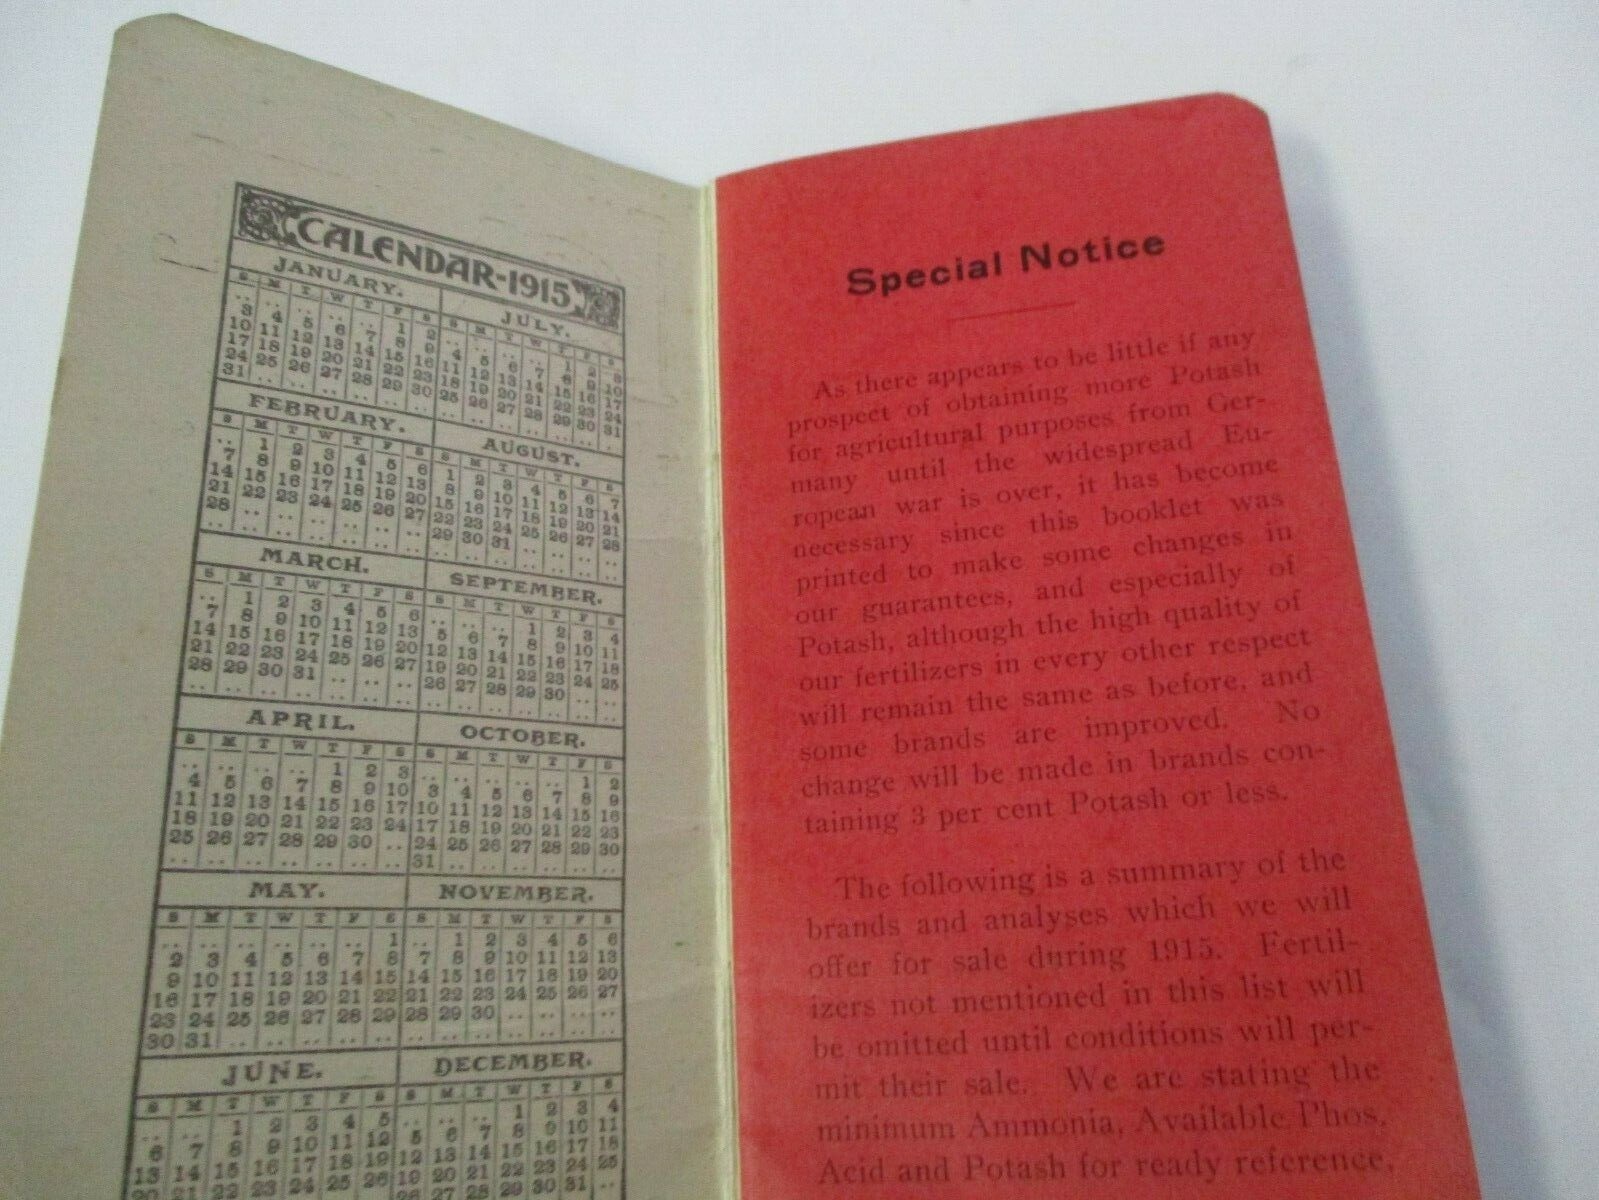 CALENDAR-1915
JANUARY.
S M T W T F S
.. .. .. .. .. 1 2
3 4 5 6 7 8 9
10 11 12 13 14 15 16
17 18 19 20 21 22 23
24 25 26 27 28 29 30
31 .. .. .. .. .. ..
FEBRUARY.
S M T W T F S
.. 1 2 3 4 5 6
7 8 9 10 11 12 13
14 15 16 17 18 19 20
21 22 23 24 25 26 27
28 .. .. .. .. .. ..
.. .. .. .. .. .. ..
MARCH.
S M T W T F S
.. 1 2 3 4 5 6
7 8 9 10 11 12 13
14 15 16 17 18 19 20
21 22 23 24 25 26 27
28 29 30 31 .. .. ..
.. .. .. .. .. .. ..
APRIL.
S M T W T F S
.. .. .. .. 1 2 3
4 5 6 7 8 9 10
11 12 13 14 15 16 17
18 19 20 21 22 23 24
25 26 27 28 29 30 ..
.. .. .. .. .. .. ..
MAY.
S M T W T F S
.. .. .. .. .. .. 1
2 3 4 5 6 7 8
9 10 11 12 13 14 15
16 17 18 19 20 21 22
23 24 25 26 27 28 29
30 31 .. .. .. .. ..
JUNE.
S M T W T F S
.. .. 1 2 3 4 5
6 7 8 9 10 11 12
13 14 15 16 17 18 19
20 21 22 23 24 25 26
JULY.
S M T W T F S
.. .. .. .. 1 2 3
4 5 6 7 8 9 10
11 12 13 14 15 16 17
18 19 20 21 22 23 24
25 26 27 28 29 30 31
.. .. .. .. .. .. ..
AUGUST.
S M T W T F S
1 2 3 4 5 6 7
8 9 10 11 12 13 14
15 16 17 18 19 20 21
22 23 24 25 26 27 28
29 30 31 .. .. .. ..
.. .. .. .. .. .. ..
SEPTEMBER.
S M T W T F S
.. .. .. 1 2 3 4
5 6 7 8 9 10 11
12 13 14 15 16 17 18
19 20 21 22 23 24 25
26 27 28 29 30 .. ..
.. .. .. .. .. .. ..
OCTOBER.
S M T W T F S
.. .. .. .. .. 1 2
3 4 5 6 7 8 9
10 11 12 13 14 15 16
17 18 19 20 21 22 23
24 25 26 27 28 29 30
31 .. .. .. .. .. ..
NOVEMBER.
S M T W T F S
.. 1 2 3 4 5 6
7 8 9 10 11 12 13
14 15 16 17 18 19 20
21 22 23 24 25 26 27
28 29 30 .. .. .. ..
.. .. .. .. .. .. ..
DECEMBER.
S M T W T F S
.. .. .. 1 2 3 4
5 6 7 8 9 10 11
12 13 14 15 16 17 18
19 20 21 22 23 24 25
26 27 28 29 30 31 ..
Special Notice
As there appears to be little if any
prospect of obtaining more Potash
for agricultural purposes from Ger-
many until the widespread Eu-
ropean war is over, it has become
necessary since this booklet was
printed to make some changes in
our guarantees, and especially of
Potash, although the high quality of
our fertilizers in every other respect
will remain the same as before, and
some brands are improved. No
change will be made in brands con-
taining 3 per cent Potash or less.
The following is a summary of the
brands and analyses which we will
offer for sale during 1915. Fertil-
izers not mentioned in this list will
be omitted until conditions will per-
mit their sale. We are stating the
minimum Ammonia, Available Phos.
Acid and Potash for ready reference,